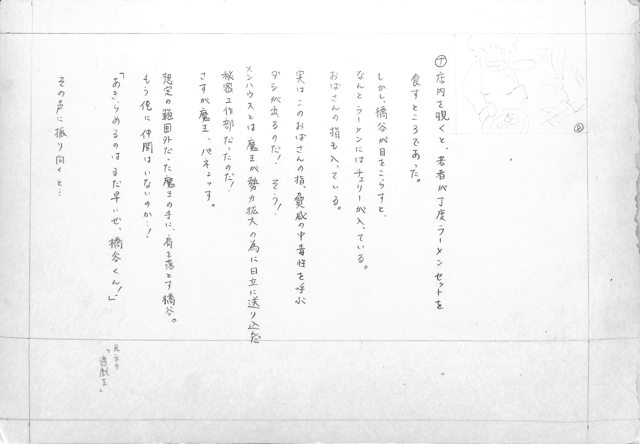 ナ 店内を覗くと、若者が丁度ラーメンセットを
食すところであった。
しかし、橋谷が目をこらすと、
なんとラーメンにはチェリーが入っている。
おばさんの指も入っている。
実はこのおばさんの指、脅威の中毒性を呼ぶ
ダシが出るのだ! そう!
メンハウスとは魔王が勢力拡大の為に日立に送り込んだ
秘密工作部だったのだ!
さすが魔王、パネェっす。
想定の範囲外だった魔王の手に、肩を落とす橋谷。
もう俺に仲間はいないのか…!
「あきらめるのはまだ早いぜ、橋谷くん!」
その声に振り向くと…
元ネタ
「遊戯王」